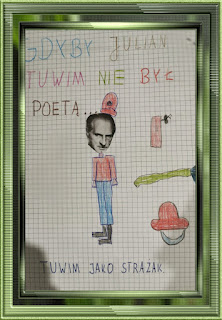 GDYBY JULIAN
TUWIM NIE BYŁ
POETĄ...
TUWIM JAKO STRAŻAK